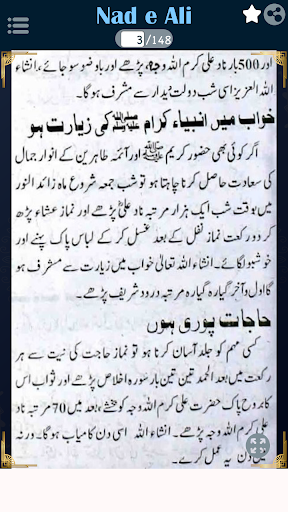 Nad e Ali
3/148
اور 500 بار ناد علی کرم اللہ وجہہ پڑھے اور باوضو سو جائے، انشاء
اللہ العزیز اسی شب دولت دیدار سے مشرف ہوگا۔
خواب میں انبیاء کرام ﷺ کی زیارت ہو
اگر کوئی بھی حضور کریم ﷺ اور آئمہ طاہرین کے انوار جمال
کی سعادت حاصل کرنا چاہتا ہو تو شب جمعہ شروع ماہ زائد النور
میں بوقت شب ایک ہزار مرتبہ ناد علی پڑھے اور نماز عشاء پڑھ
کر دو رکعت نماز نفل کے بعد غسل کر کے لباس پاک پہنے اور
خوشبو لگائے۔ انشاء اللہ تعالیٰ خواب میں زیارت سے مشرف ہو
گا اول و آخر گیارہ گیارہ مرتبہ درود شریف پڑھے۔
حاجات پوری ہوں
کسی مہم کو جلد آسان کرنا ہو تو نماز حاجت کی نیت سے ہر
رکعت میں بعد الحمد تین تین بار سورہ اخلاص پڑھے اور ثواب اس
کا بروح پاک حضرت علی کرم اللہ وجہہ کو بخشے، بعد میں 70 مرتبہ ناد
علی کرم اللہ وجہہ پڑھے۔ انشاء اللہ اسی دن کامیاب ہو گا۔ ورنہ
دن یہ عمل کرے۔